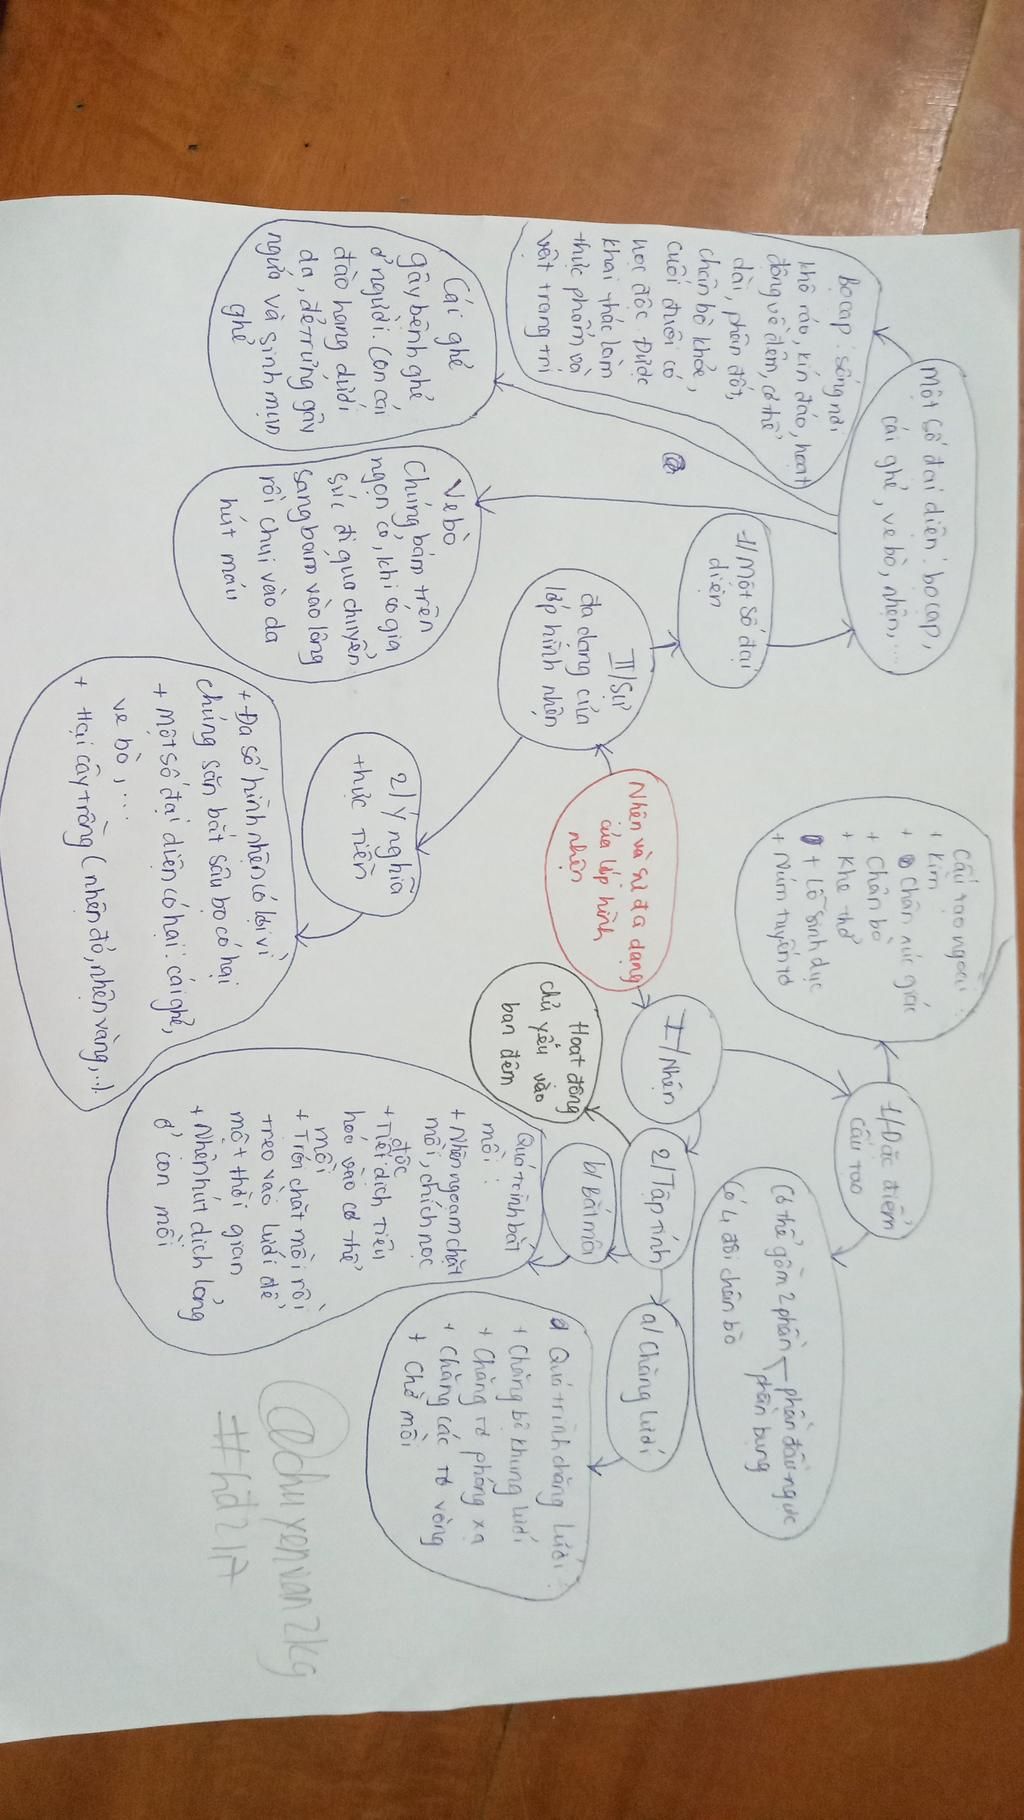 Nhện và sự đa dạng
của lớp hình
nhện
I/ Nhện
1/ Đặc điểm
cấu tạo
Cấu tạo ngoài:
+ Kìm
+ Chân xúc giác
+ Chân bò
+ Khe thở
+ Lỗ sinh dục
+ Núm tuyến tơ
Cơ thể gồm 2 phần
phần đầu-ngực
phần bụng
Có 4 đôi chân bò
2/ Tập tính
a/ Chăng lưới
Quá trình chăng lưới:
+ Chăng bộ khung lưới
+ Chăng tơ phóng xạ
+ Chăng các tơ vòng
+ Chờ mồi
b/ Bắt mồi
Quá trình bắt
mồi:
+ Nhện ngoạm chặt
mồi, chích nọc
độc
+ Tiết dịch tiêu
hóa vào cơ thể
mồi
+ Trói chặt mồi rồi
treo vào lưới để
một thời gian
+ Nhện hút dịch lỏng
ở con mồi
Hoạt động
chủ yếu vào
ban đêm
II/ Sự
đa dạng của
lớp hình nhện
1/ Một số đại
diện
Một số đại diện: bọ cạp,
cái ghẻ, ve bò, nhện,...
Bọ cạp: sống nơi
khô ráo, kín đáo, hoạt
động về đêm, cơ thể
dài, phân đốt,
chân bò khỏe,
cuối đuôi có
nọc độc. Được
khai thác làm
thực phẩm và
vật trang trí
Cái ghẻ
gây bệnh ghẻ
ở người. Con cái
đào hang dưới
da, đẻ trứng gây
ngứa và sinh mụn
ghẻ
Ve bò
Chúng bám trên
ngọn cỏ, khi có gia
súc đi qua chuyển
sang bám vào lông
rồi chui vào da
hút máu
2/ Ý nghĩa
thực tiễn
+ Đa số hình nhện có lợi vì
chúng săn bắt sâu bọ có hại
+ Một số đại diện có hại: cái ghẻ,
ve bò,...
+ Hại cây trồng (nhện đỏ, nhện vàng,...).
@chuyenvan2kg
#hđ217